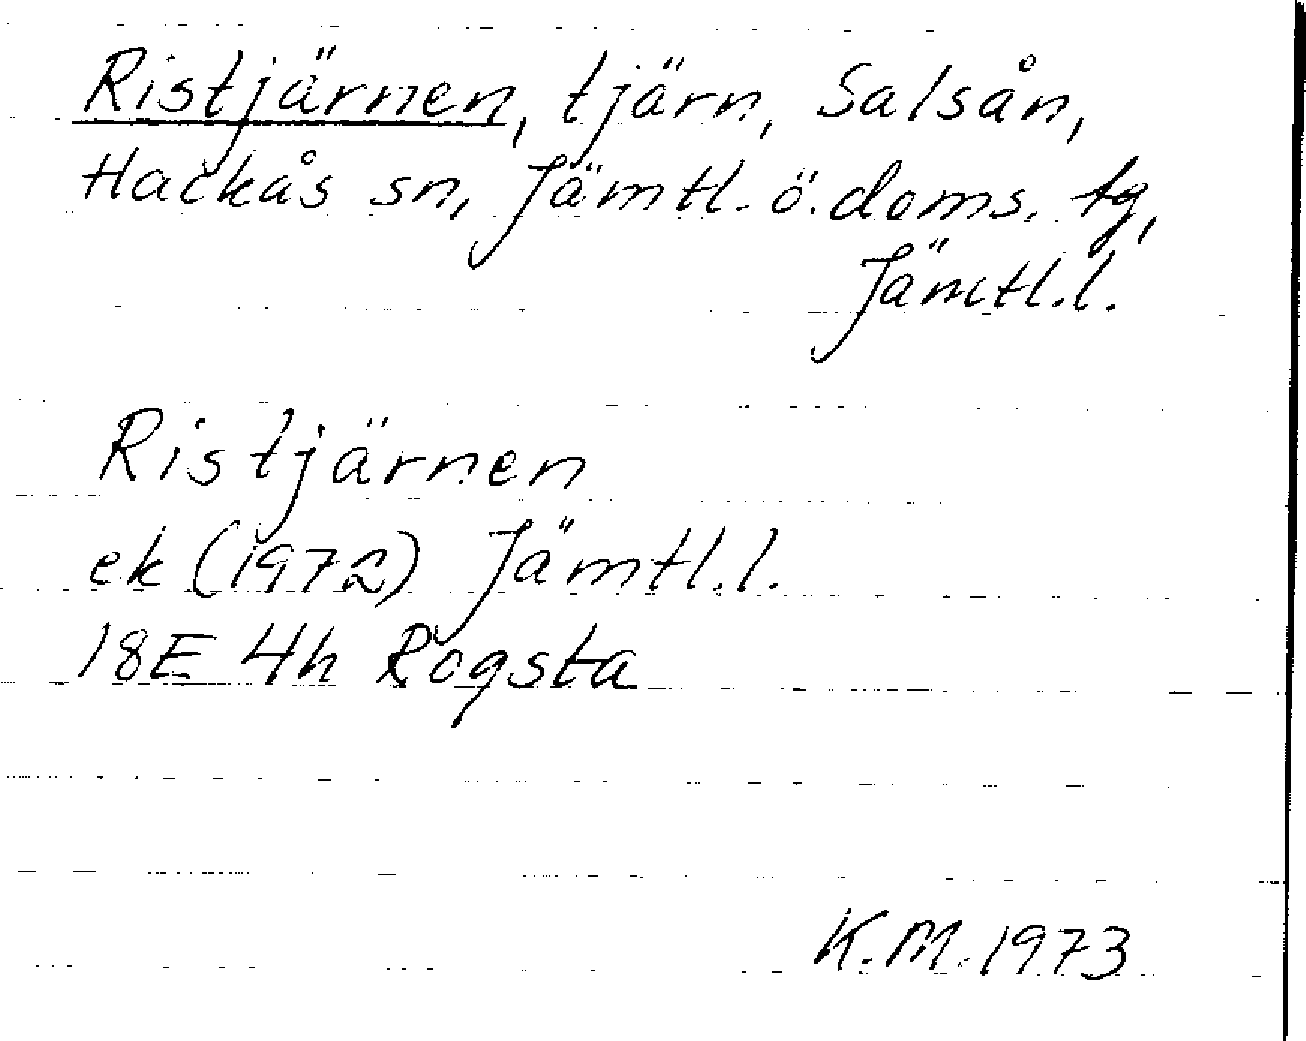 Ristjärnen, tjärn, Salsån,
Hackås sn, Jämtl. ö. doms. tg,
Jämtl. l.
Ristjärnen
ek (1972) Jämtl. l.
18E 4h Rogsta
K. M. 1973